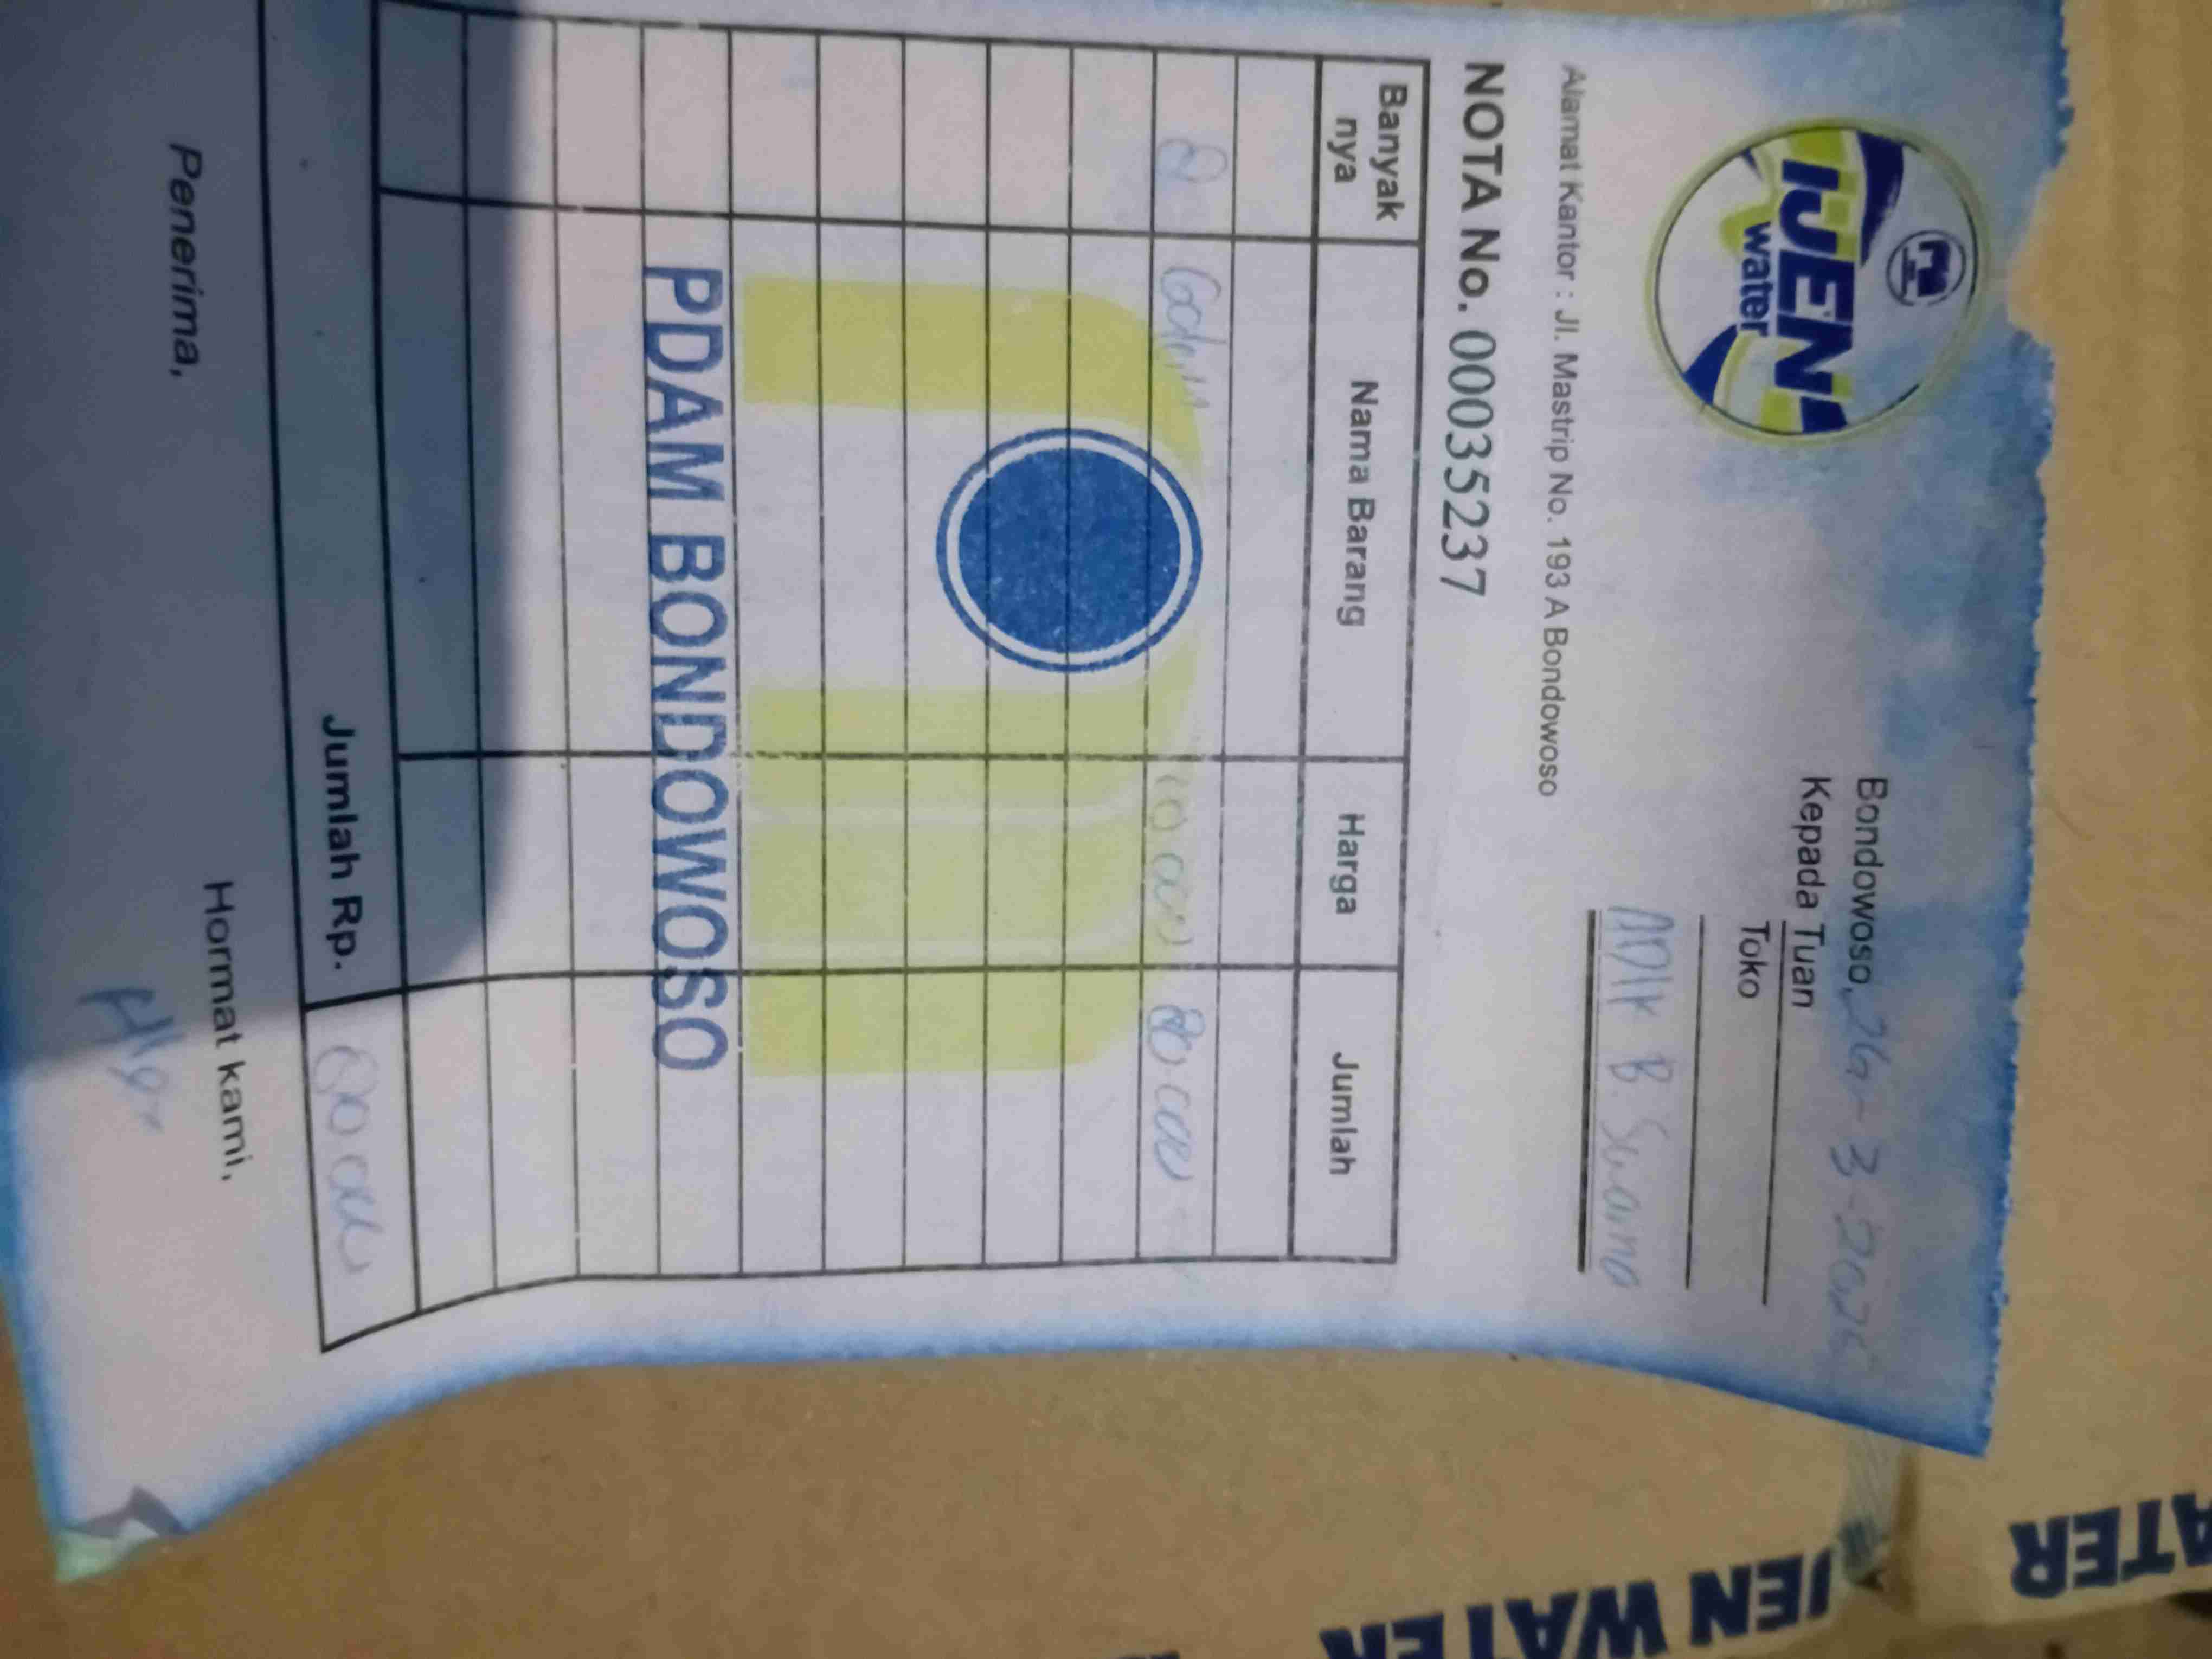 IJEN
water
Bondowoso, 26 - 3 - 2025
Kepada Tuan
Toko
B. Suarno
Alamat Kantor : Jl. Mastrip No. 193 A Bondowoso
NOTA No. 00035237
Banyak nya Nama Barang Harga Jumlah
8 Galon 10 000 80 000
PDAM BONDOWOSO
Jumlah Rp. 80 000
Penerima, Hormat kami,
IJEN WATER
ATER